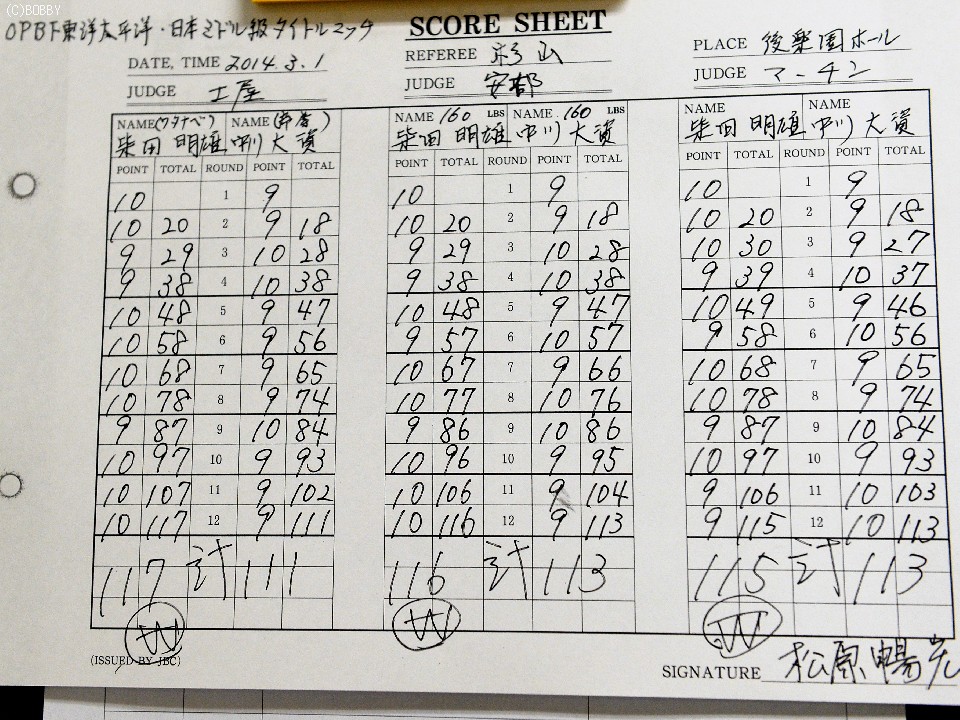 (C)BOBBY
OPBF東洋太平洋・日本ミドル級タイトルマッチ
SCORE SHEET
DATE, TIME 2014.3.1 REFEREE 杉山 PLACE 後楽園ホール
JUDGE 土屋 JUDGE 安部 JUDGE マーチン
NAME(ワタナベ) NAME NAME 160 LBS NAME. 160 LBS NAME NAME
柴田 明雄 中川 大資 柴田 明雄 中川 大資 柴田 明雄 中川 大資
POINT TOTAL ROUND POINT TOTAL POINT TOTAL ROUND POINT TOTAL POINT TOTAL ROUND POINT TOTAL
10 1 9 10 1 9 10 1 9
10 20 2 9 18 10 20 2 9 18 10 20 2 9 18
9 29 3 10 28 9 29 3 10 28 10 30 3 9 27
9 38 4 10 38 9 38 4 10 38 9 39 4 10 37
10 48 5 9 47 10 48 5 9 47 10 49 5 9 46
10 58 6 9 56 9 57 6 10 57 9 58 6 10 56
10 68 7 9 65 10 67 7 9 66 10 68 7 9 65
10 78 8 9 74 10 77 8 10 76 10 78 8 9 74
9 87 9 10 84 9 86 9 10 86 9 87 9 10 84
10 97 10 9 93 10 96 10 9 95 10 97 10 9 93
10 107 11 9 102 10 106 11 9 104 9 106 11 10 103
10 117 12 9 111 10 116 12 9 113 9 115 12 10 113
117 計 111 116 計 113 115 計 113
W W W
(ISSUED BY JBC) SIGNATURE 松原暢宏